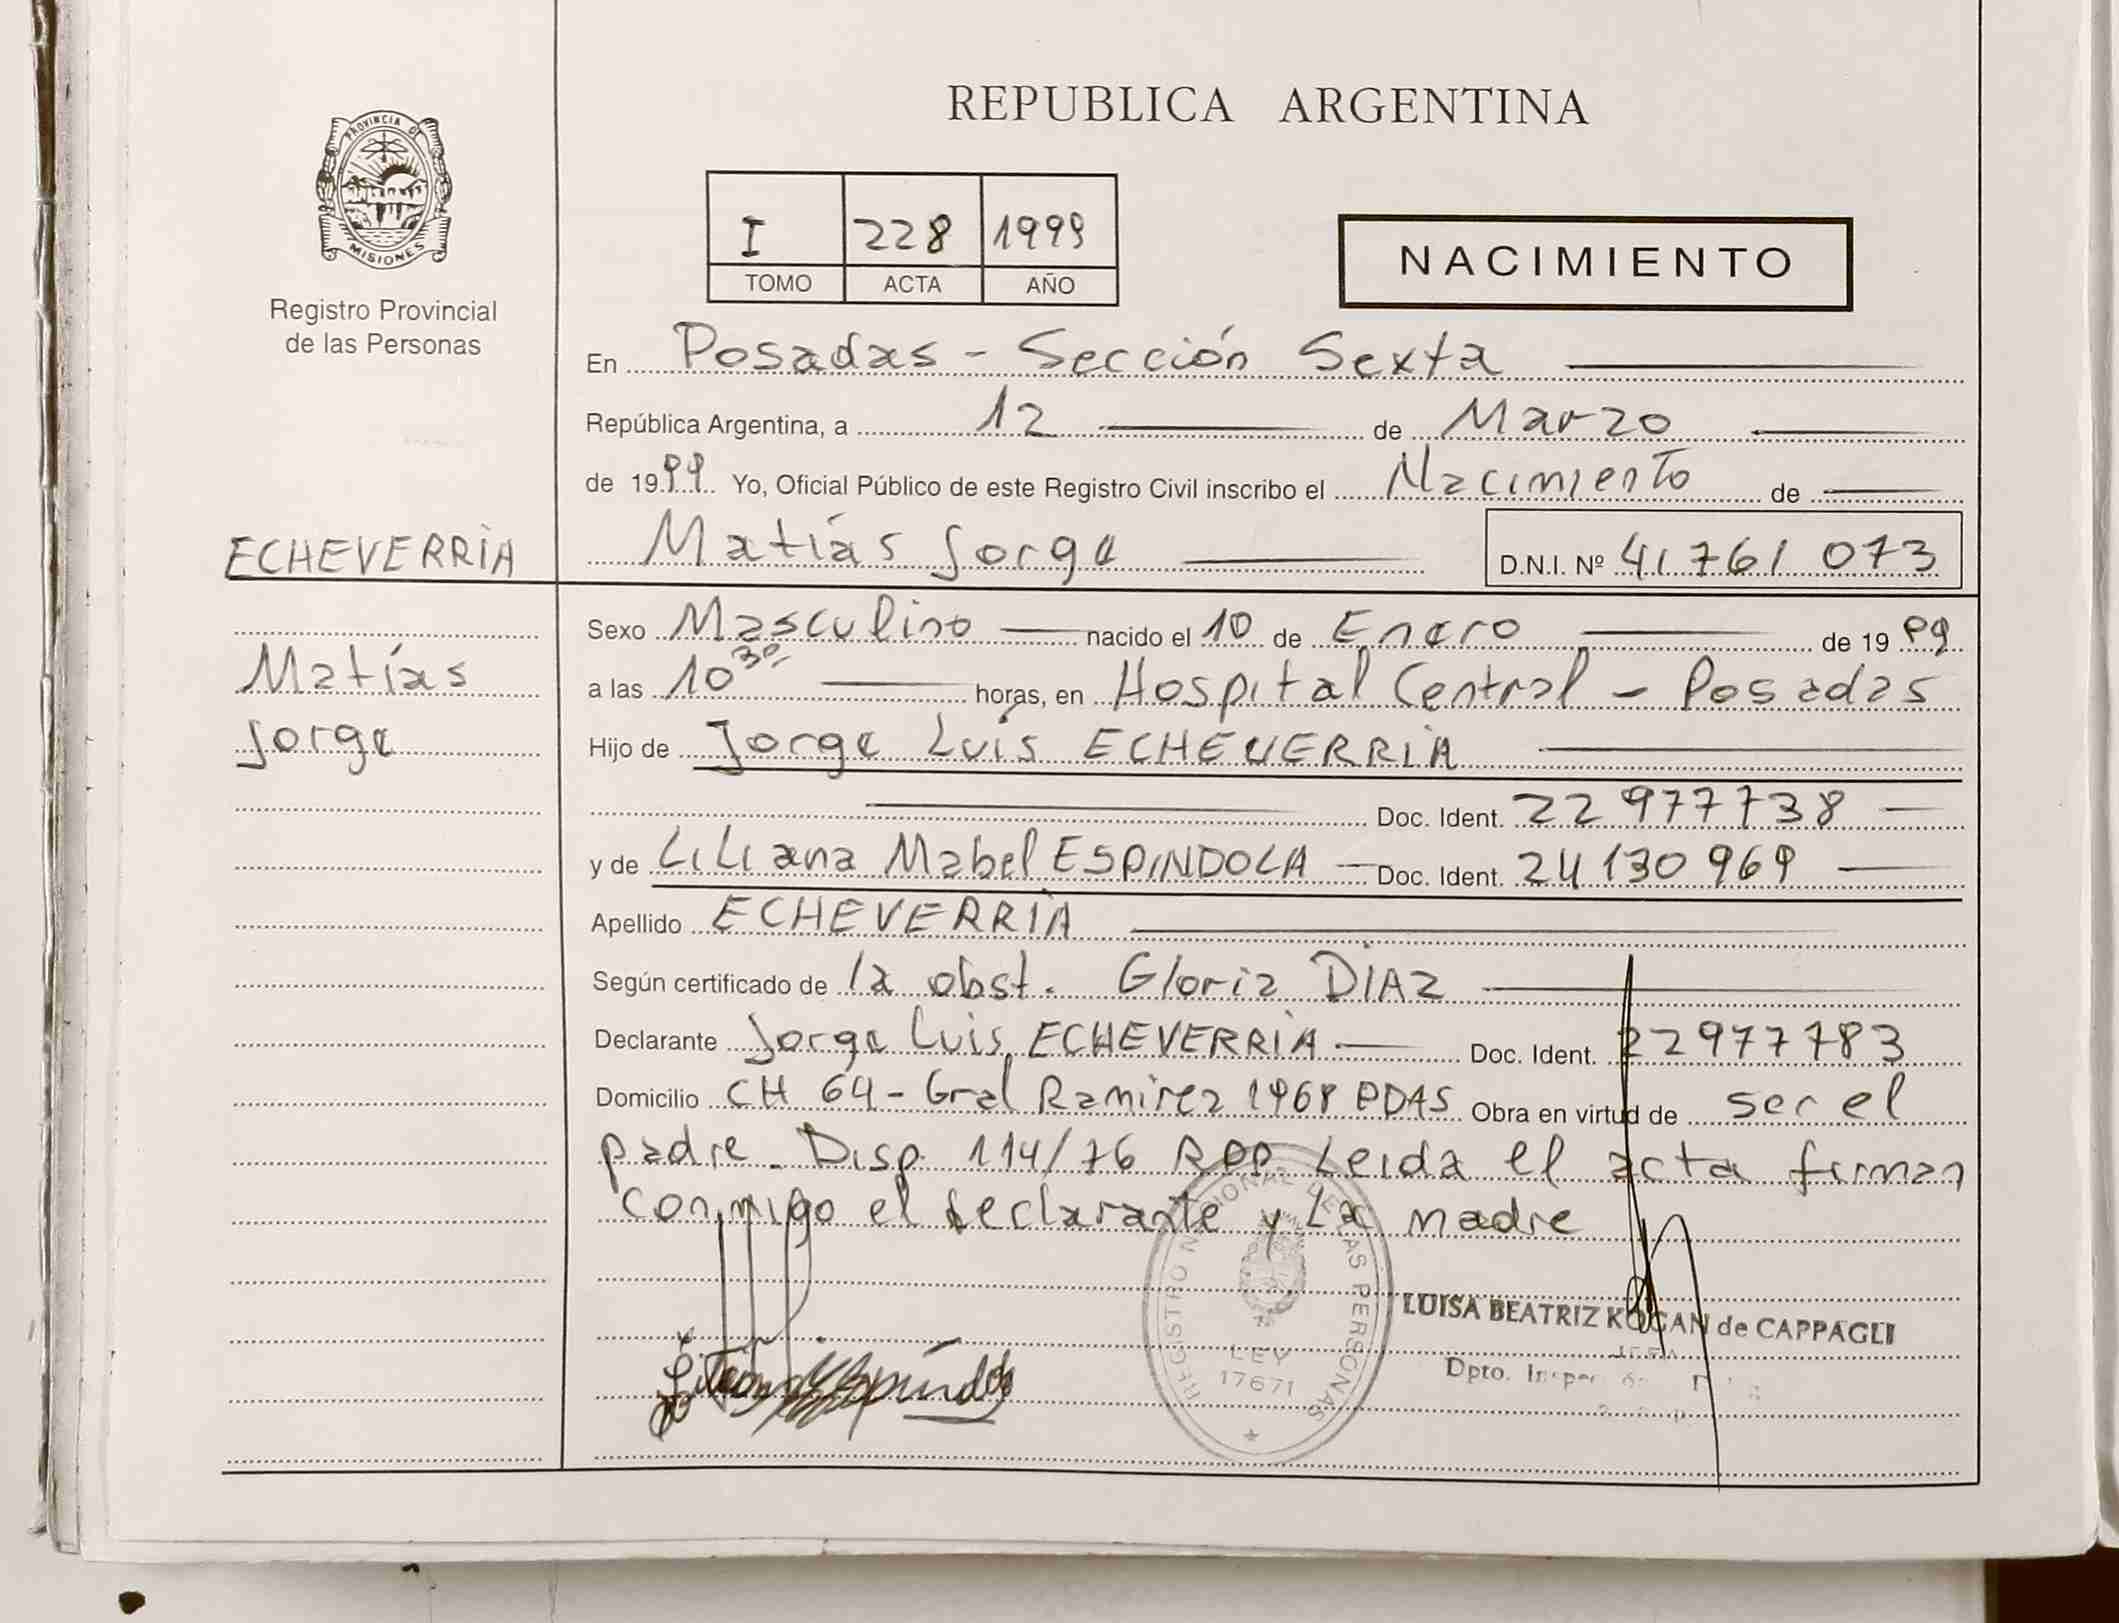 PROVINCIA DE
MISIONES
Registro Provincial
de las Personas
ECHEVERRÍA
Matías
Jorge
REPUBLICA ARGENTINA
I 228 1999
TOMO ACTA AÑO
NACIMIENTO
En Posadas - Sección Sexta
República Argentina, a 12 de Marzo
de 1999 Yo, Oficial Público de este Registro Civil inscribo el Nacimiento de
Matías Jorge D.N.I. Nº 41 761 073
Sexo Masculino nacido el 10 de Enero de 1999
a las 10 30 horas, en Hospital Central - Posadas
Hijo de Jorge Luis ECHEVERRÍA
Doc. Ident. 22 977 738
y de Liliana Mabel ESPINDOLA Doc. Ident. 24 130 969
Apellido ECHEVERRÍA
Según certificado de la obst. Gloria DÍAZ
Declarante Jorge Luis ECHEVERRÍA Doc. Ident. 22977783
Domicilio CH 64 - Gral Ramirez 1968 PDAS Obra en virtud de ser el
padre. Disp 114/76 RPP. Leida el acta firman
conmigo el declarante y La madre
REGISTRO NACIONAL DE LAS PERSONAS
LEY
17671
LUISA BEATRIZ KOGAN de CAPPAGLI
Dpto.